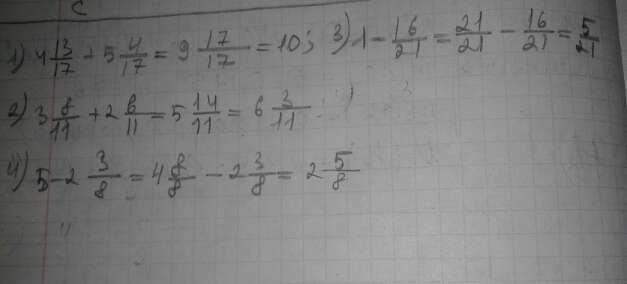 C
1) 4 13/17 + 5 4/17 = 9 17/17 = 10; 3) 1 - 16/21 = 21/21 - 16/21 = 5/21
2) 3 8/11 + 2 6/11 = 5 14/11 = 6 3/11;
4) 5 - 2 3/8 = 4 8/8 - 2 3/8 = 2 5/8